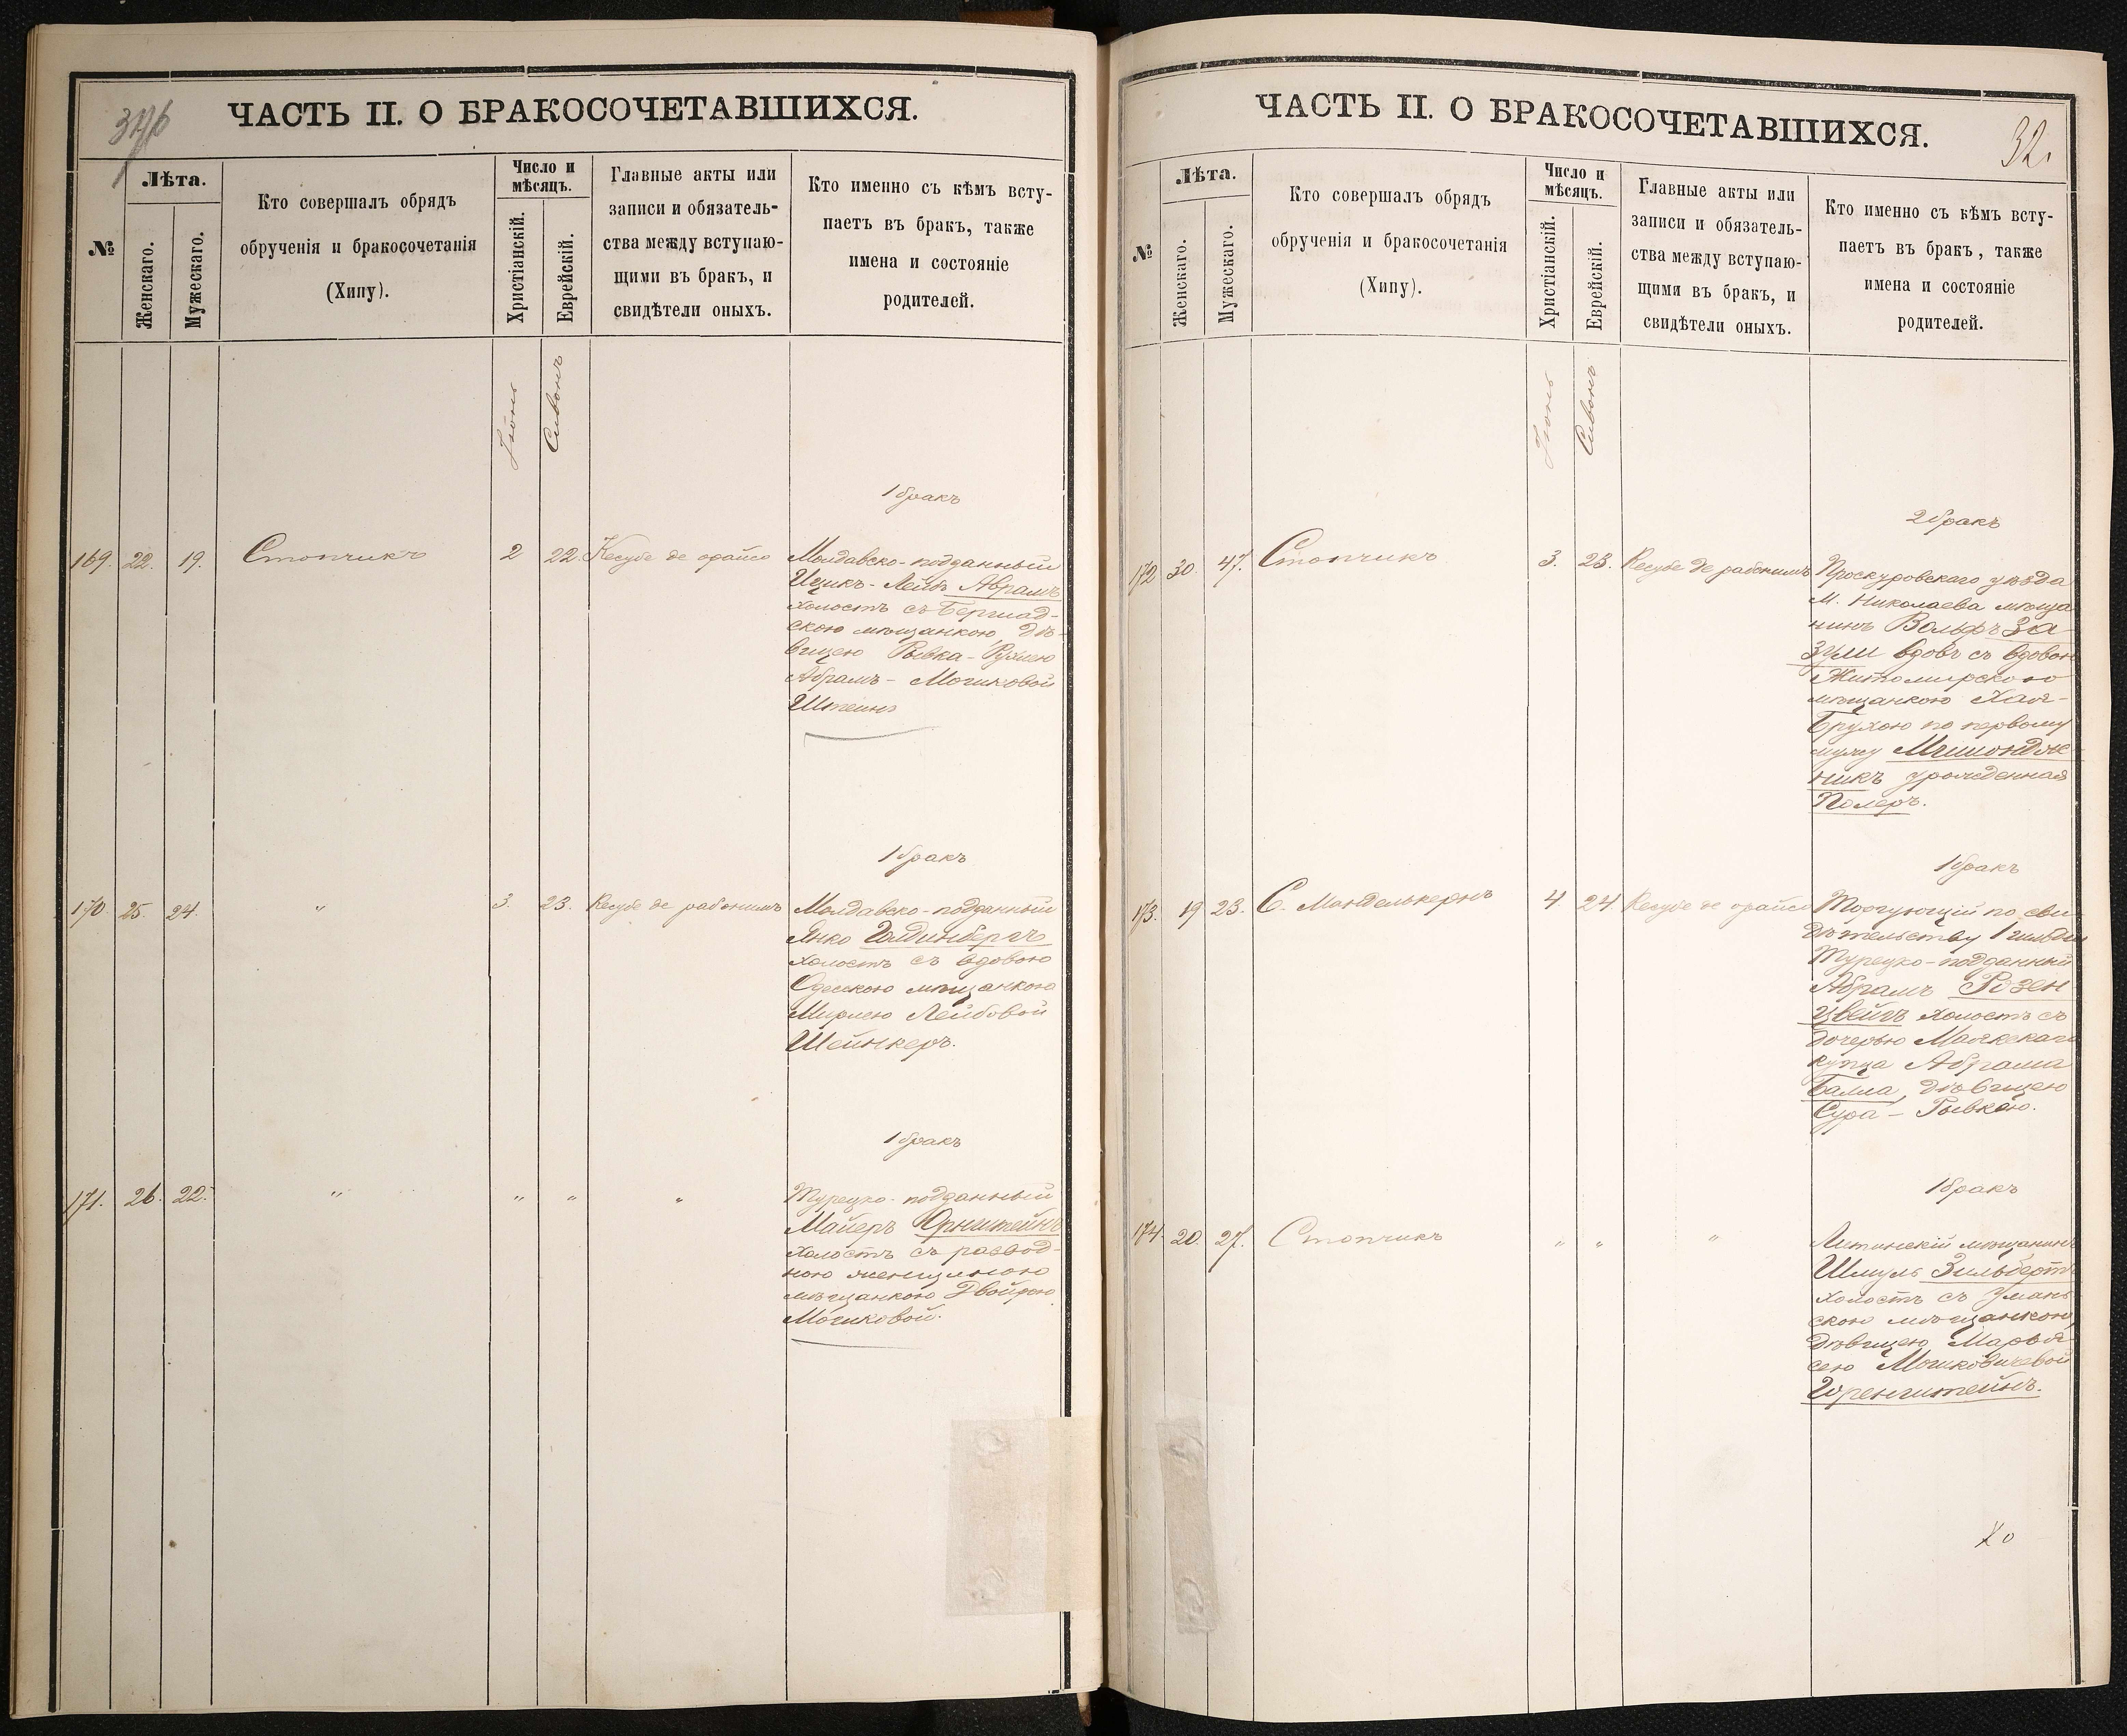 31/б
ЧАСТЬ II. О БРАКОСОЧЕТАВШИХСЯ.
№
Лѣта.
Женскаго.
Мужескаго.
Кто совершалъ обрядъ
обрученія и бракосочетанія
(Хипу).
Число и
мѣсяцъ.
Христіанскій.
Еврейскій.
Главные акты или
записи и обязатель-
ства между вступаю-
щими въ бракъ, и
свидѣтели оныхъ.
Кто именно съ кѣмъ всту-
паетъ въ бракъ, также
имена и состояніе
родителей.
Іюнь
Сивонъ
1 бракъ
169. 22. 19. Стопчикъ 2 22. Кесубе де орайсо
Молдавско-подданный
Ицикъ-Лейб Абрамъ
холостъ съ Бершад-
скою мѣщанкою, дѣ-
вицею Рывка-Рухлею
Абрамъ-Мошковой
Штейнъ
1 бракъ
170. 25. 24. " 3. 23. Кесубе де рабонимъ
Молдавско-подданный
Янко Голдинбергъ
холостъ съ вдовою
Одесскою мѣщанкою
Мирлею Лейбовой
Шейнкеръ.
1 бракъ
171. 26. 22. " " " "
Турецко-подданный
Майеръ Орнштейнъ
холостъ съ развод-
ною женщиною
мѣщанкою Двойрою
Мошковой.
ЧАСТЬ II. О БРАКОСОЧЕТАВШИХСЯ.
32.
№
Лѣта.
Женскаго.
Мужескаго.
Кто совершалъ обрядъ
обрученія и бракосочетанія
(Хипу).
Число и
мѣсяцъ.
Христіанскій.
Еврейскій.
Главные акты или
записи и обязатель-
ства между вступаю-
щими въ бракъ, и
свидѣтели оныхъ.
Кто именно съ кѣмъ всту-
паетъ въ бракъ, также
имена и состояніе
родителей.
Іюнь
Сивонъ
2 бракъ
172 30. 47. Стопчикъ 3. 23. Кесубе де рабонимъ
Проскуровскаго уѣзда
М. Николаева мѣща
нинъ Вольфъ За-
зули вдовъ съ вдовою
Житомирскою
мѣщанкою Хая-
Брухою по первому
мужу
никъ урожденная
Полеръ.
1 бракъ
173. 19 23. С. Манделькернъ 4 24 Кесубе де орайсо
Торгующій по сви-
дѣтельству 1 гильдіи
Турецко-подданный
Абрамъ Розен
цвейгъ холостъ съ
дочерью Маякскаго
купца Абрама
Балла, дѣвицею
Сура-Рывкою.
1 бракъ
174. 20. 27. Стопчикъ " " "
Литинскій мѣщанинъ
Шмуль Зильберт
холостъ съ Умань
скою мѣщанкою,
дѣвицею Марья-
сею Мошковичевой
Горенштейнъ.